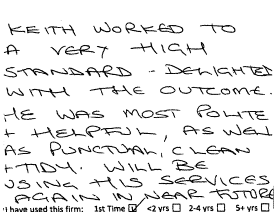 KEITH WORKED TO
A VERY HIGH
STANDARD - DELIGHTED
WITH THE OUTCOME.
HE WAS MOST POLITE
+ HELPFUL, AS WELL
AS PUNCTUAL, CLEAN
+ TIDY. WILL BE
USING HIS SERVICES
AGAIN IN NEAR FUTURE
I have used this firm: 1st Time ☑ <2 yrs ☐ 2-4 yrs ☐ 5+ yrs ☐